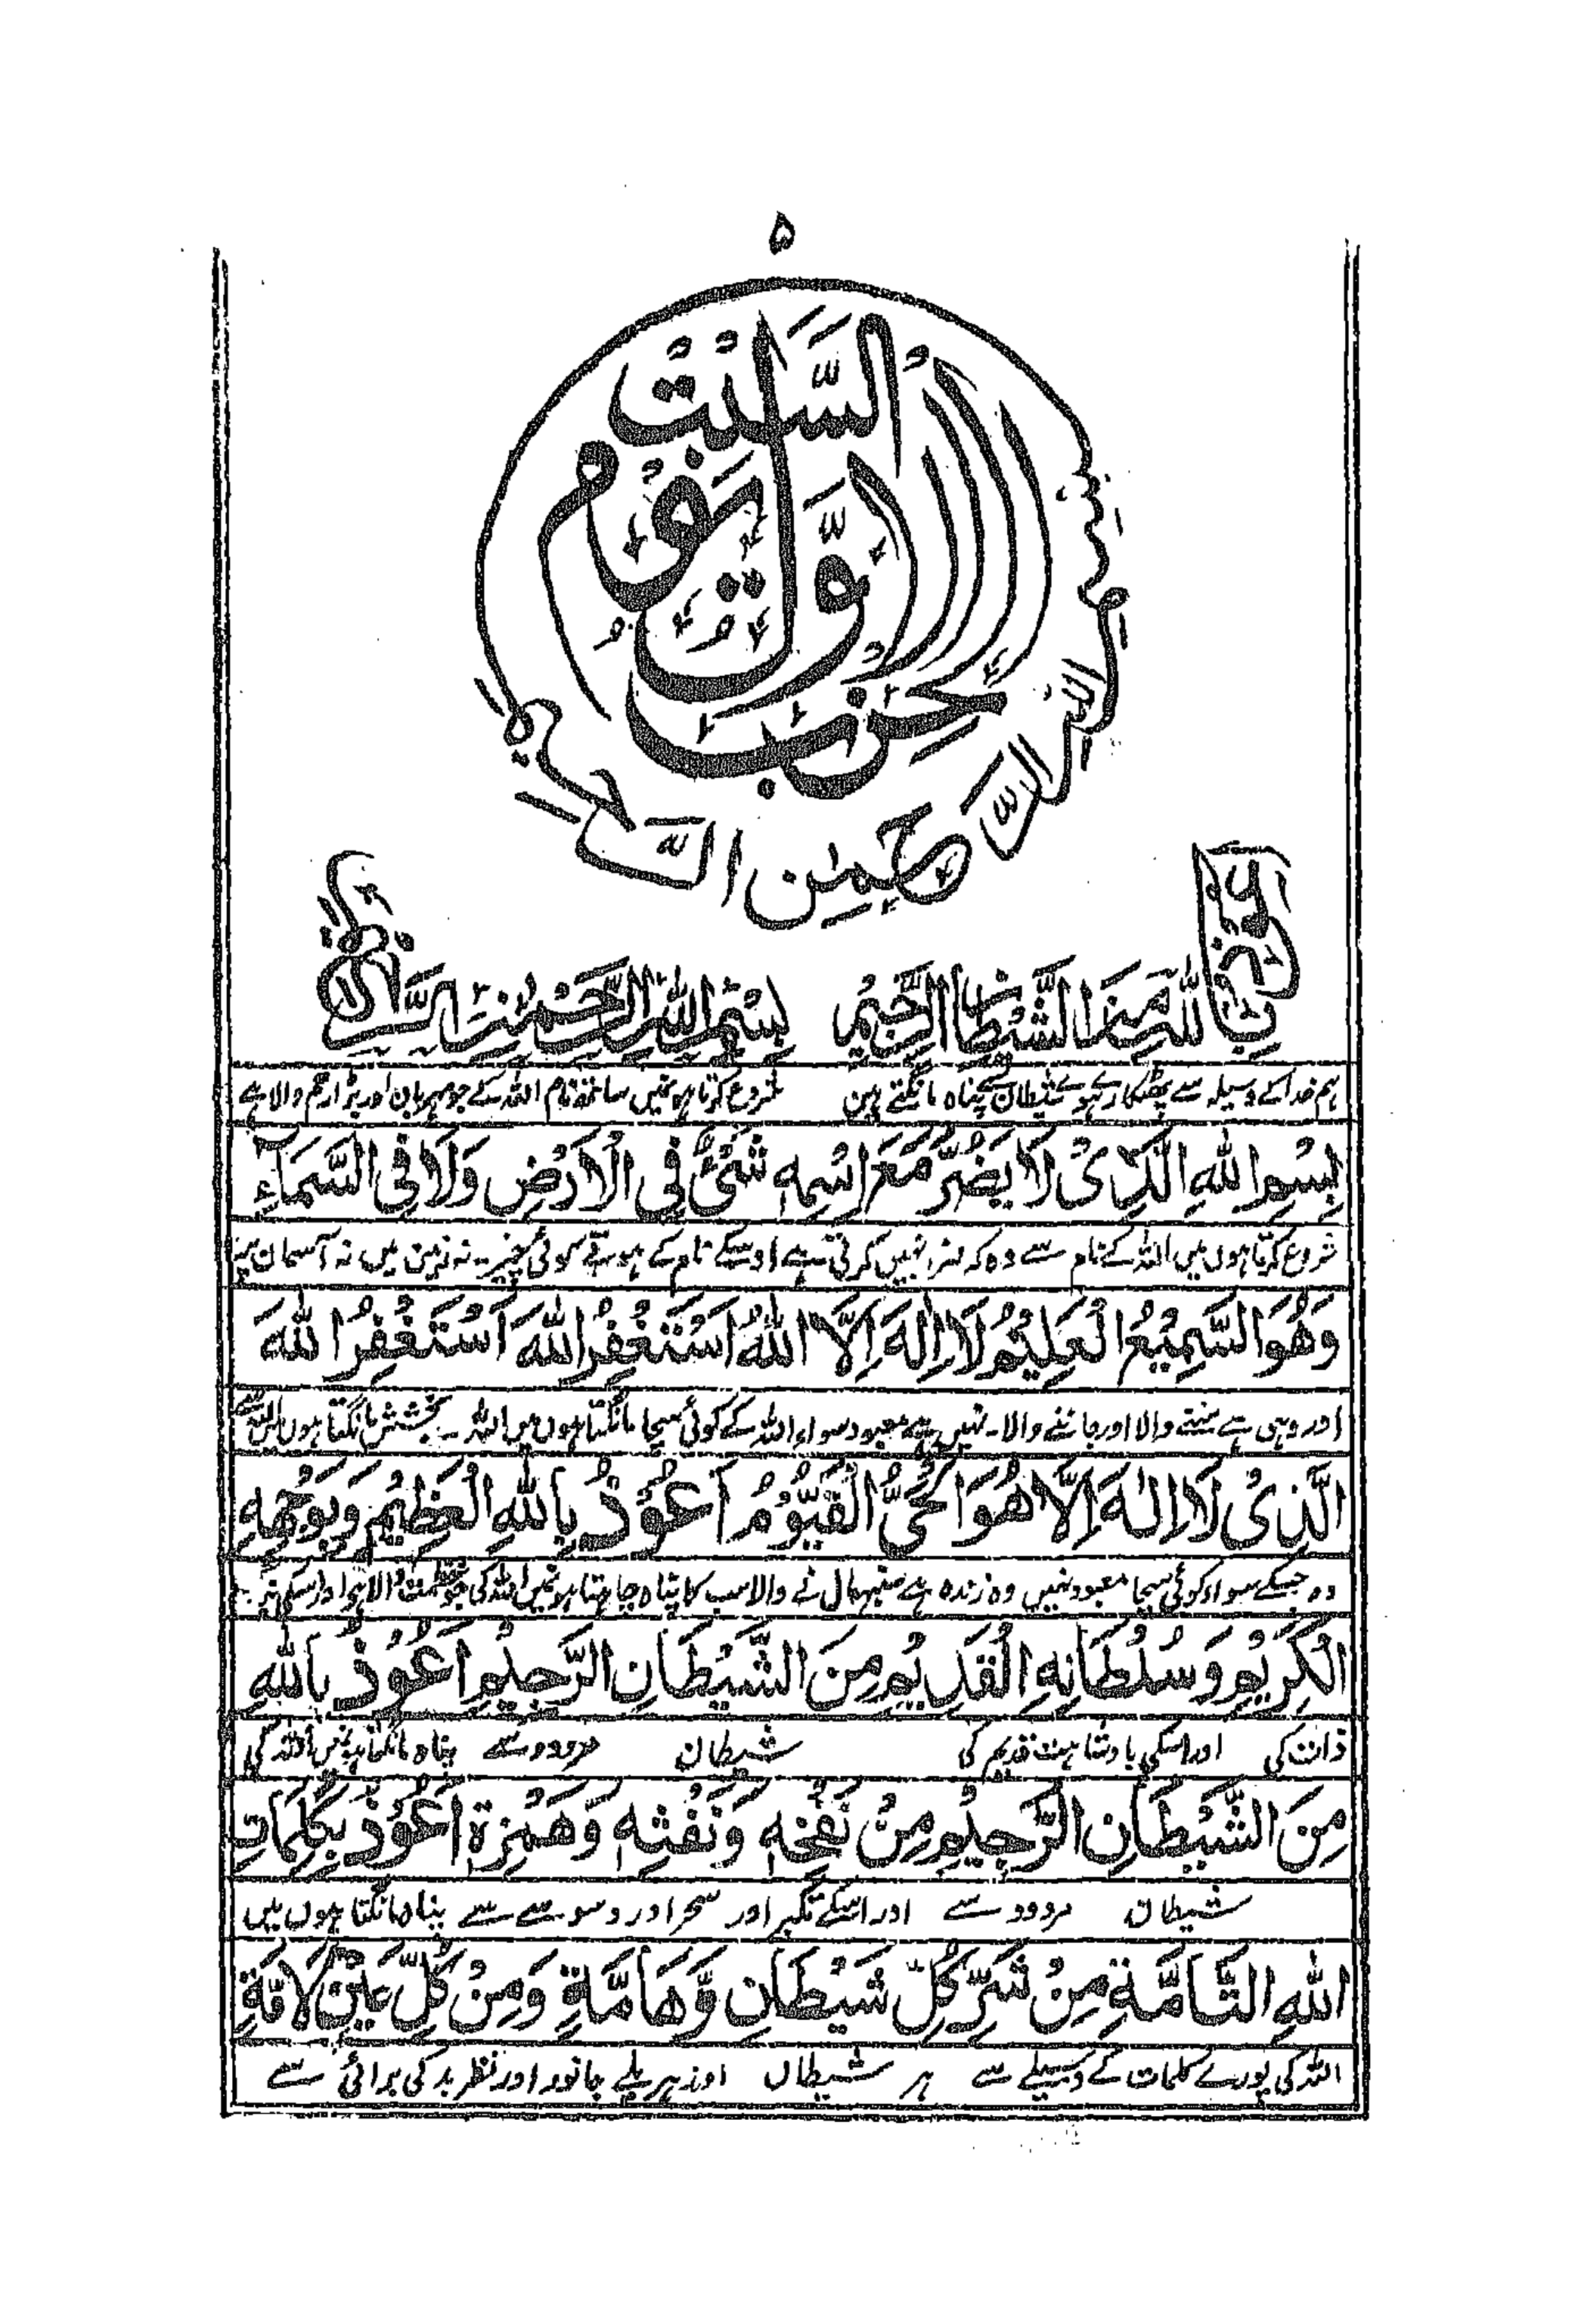 ۵
السَّبْت
يَوْم
الْاَوَّل
حِزْب
بسم الله الرحمن الرحيم
اَعُوْذُ بِاللّٰهِ مِنَ الشَّيْطٰنِ الرَّجِيْمِ بِسْمِ اللّٰهِ الرَّحْمٰنِ الرَّحِيْمِ
ہم خدا کے وسیلہ سے پھٹکارے ہوے شیطان سے پناہ مانگتے ہین شروع کرتا ہو نمیں ساتھ نام اللہ کے جو مہربان اور بڑا رحم والا ہے
بِسْمِ اللهِ الَّذِىْ لَا يَضُرُّ مَعَ اسْمِهٖ شَىْءٌ فِى الْاَرْضِ وَلَا فِى السَّمَآءِ
شروع کرتا ہوں میں اللہ کے نام سے وہ کہ ضرر نہیں کرتی ہے اوسکے نام کے ہوتے کوئی چیز ۔ نہ زمین میں نہ آسمان میں
وَهُوَ السَّمِيْعُ الْعَلِيْمُ لَا اِلٰهَ اِلَّا اللهُ اَسْتَغْفِرُ اللهَ اَسْتَغْفِرُ اللهَ
اور وہی ہے سننے والا اور جاننے والا ۔ نہیں ہے معبود سواء اللہ کے کوئی سچا مانگتا ہوں میں اللہ ۔ بخشش مانگتا ہوں اللہ سے
الَّذِىْ لَا اِلٰهَ اِلَّا هُوَ الْحَىُّ الْقَيُّوْمُ اَعُوْذُ بِاللهِ الْعَظِيْمِ وَبِوَجْهِهِ
وہ جسکے سواء کوئی سچا معبود نہیں وہ زندہ ہے سنبھالنے والا سب کا پناہ چاہتا ہو نمیں اللہ کی جو عظمت والا ہے اور اسکی بزرگ
الْكَرِيْمِ وَسُلْطَانِهِ الْقَدِيْمِ مِنَ الشَّيْطَانِ الرَّجِيْمِ اَعُوْذُ بِاللهِ
ذات کی اور اسکی بادشاہت قدیم کی شیطان مردود سے پناہ مانگتا ہو نمیں اللہ کی
مِنَ الشَّيْطَانِ الرَّجِيْمِ مِنْ نَفْخِهٖ وَنَفْثِهٖ وَهَمْزِهٖ اَعُوْذُ بِكَلِمَاتِ
شیطان مردود سے اور اسکے تکبر اور سحر اور وسوسے سے پناہ مانگتا ہوں میں
اللهِ التَّامَّةِ مِنْ شَرِّ كُلِّ شَيْطَانٍ وَّهَامَّةٍ وَمِنْ كُلِّ عَيْنٍ لَامَّةٍ
اللہ کی پورے کلمات کے وسیلے سے ہر شیطان اور زہریلے جانور اور نظر بد کی برائی سے